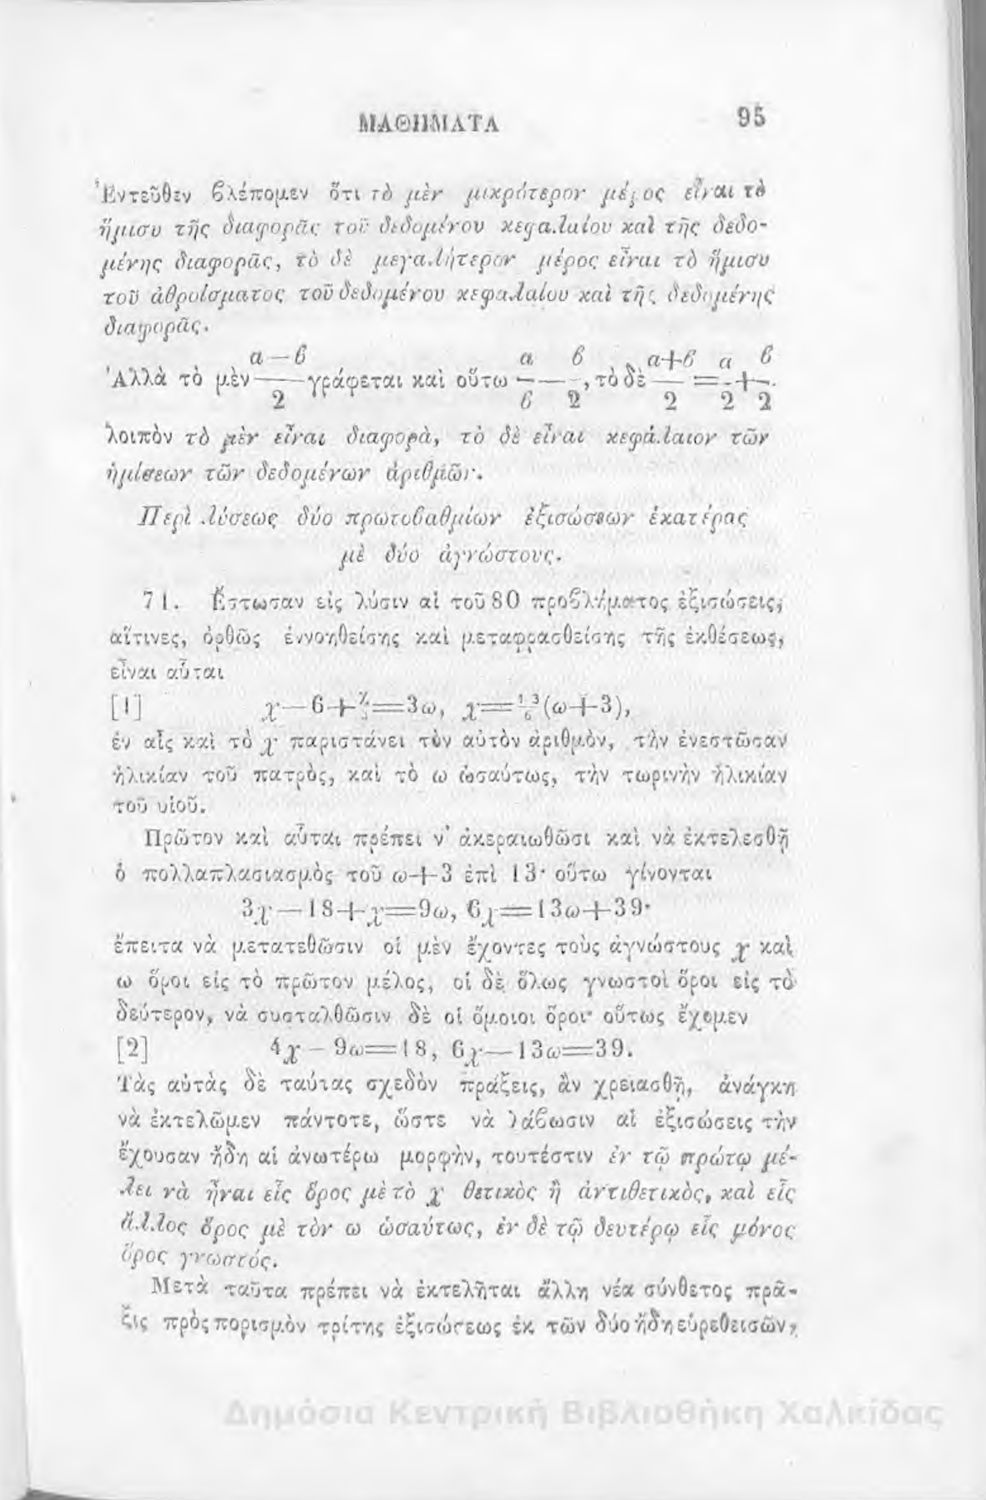 ΜΑΘΗΜΑΤΑ 95
Ἐντεῦθεν βλέπομεν ὅτι τὸ μὲν μικρότερον μέρος εἶναι τὸ
ἥμισυ τῆς διαφορᾶς τοῦ δεδομένου κεφαλαίου καὶ τῆς δεδο-
μένης διαφορᾶς, τὸ δὲ μεγαλήτερον μέρος εἶναι τὸ ἥμισυ
τοῦ ἀθροίσματος τοῦ δεδομένου κεφαλαίου καὶ τῆς δεδομένης
διαφορᾶς.
α—β α β α+β α β
Ἀλλὰ τὸ μὲν——γράφεται καὶ οὕτω — — —, τὸ δὲ — = — + —.
2 β 2 2 2 2
λοιπὸν τὸ μὲν εἶναι διαφορὰ, τὸ δὲ εἶναι κεφάλαιον τῶν
ἡμίσεων τῶν δεδομένων ἀριθμῶν.
Περὶ λύσεως δύο πρωτοβαθμίων ἐξισώσεων ἑκατέρας
μὲ δύο ἀγνώστους.
71. Ἔστωσαν εἰς λύσιν αἱ τοῦ 80 προβλήματος ἐξισώσεις,
αἵτινες, ὀρθῶς ἐννοηθείσης καὶ μεταφρασθείσης τῆς ἐκθέσεως,
εἶναι αὗται
[1] χ—6+χ/3=3ω, χ=13/6(ω+3),
ἐν αἷς καὶ τὸ χ παριστάνει τὸν αὐτὸν ἀριθμὸν, τὴν ἐνεστῶσαν
ἡλικίαν τοῦ πατρὸς, καὶ τὸ ω ὡσαύτως, τὴν τωρινὴν ἡλικίαν
τοῦ υἱοῦ.
Πρῶτον καὶ αὗται πρέπει ν' ἀκεραιωθῶσι καὶ νὰ ἐκτελεσθῇ
ὁ πολλαπλασιασμὸς τοῦ ω+3 ἐπὶ 13· οὕτω γίνονται
3χ—18+χ=9ω, 6χ=13ω+39·
ἔπειτα νὰ μετατεθῶσιν οἱ μὲν ἔχοντες τοὺς ἀγνώστους χ καὶ
ω ὅροι εἰς τὸ πρῶτον μέλος, οἱ δὲ ὅλως γνωστοὶ ὅροι εἰς τὸ
δεύτερον, νὰ συσταλθῶσιν δὲ οἱ ὅμοιοι ὅροι· οὕτως ἔχομεν
[2] 4χ—9ω=18, 6χ—13ω=39.
Τὰς αὐτὰς δὲ ταύτας σχεδὸν πράξεις, ἂν χρειασθῇ, ἀνάγκη
νὰ ἐκτελῶμεν πάντοτε, ὥστε νὰ λάβωσιν αἱ ἐξισώσεις τὴν
ἔχουσαν ἤδη αἱ ἀνωτέρω μορφὴν, τουτέστιν ἐν τῷ πρώτῳ μέ-
λει νὰ ἦναι εἷς ὅρος μὲ τὸ χ θετικὸς ἢ ἀντιθετικὸς, καὶ εἷς
ἄλλος ὅρος μὲ τὸν ω ὡσαύτως, ἐν δὲ τῷ δευτέρῳ εἷς μόνος
ὅρος γνωστός.
Μετὰ ταῦτα πρέπει νὰ ἐκτελῆται ἄλλη νέα σύνθετος πρᾶ-
ξις πρὸς πορισμὸν τρίτης ἐξισώσεως ἐκ τῶν δύο ἤδη εὑρεθεισῶν,
Δημόσια Κεντρική Βιβλιοθήκη Χαλκίδας